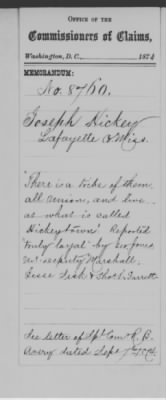 OFFICE OF THE
Commissioners of Claims,
Washington, D. C., 187
MEMORANDUM:
No. 8760.
Joseph Hickey
Lafayette Co Miss.
"There is a tribe of them,
all Union, and live
at what is called
Hickeytown" Reported
"truly loyal" by
deputy Marshall.
Jesse &
See letter of Spl Com R. B.
Avery dated Sept